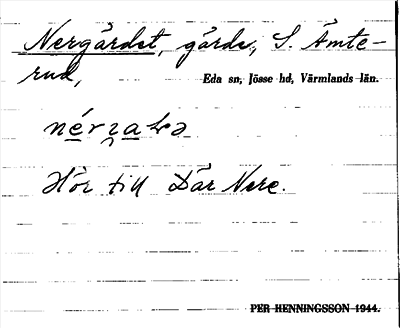 Nergärdet, gärde, S. Ämte-
rud,
Eda sn, Jösse hd, Värmlands län.
Hör till Där Nere.
PER HENNINGSSON 1944.